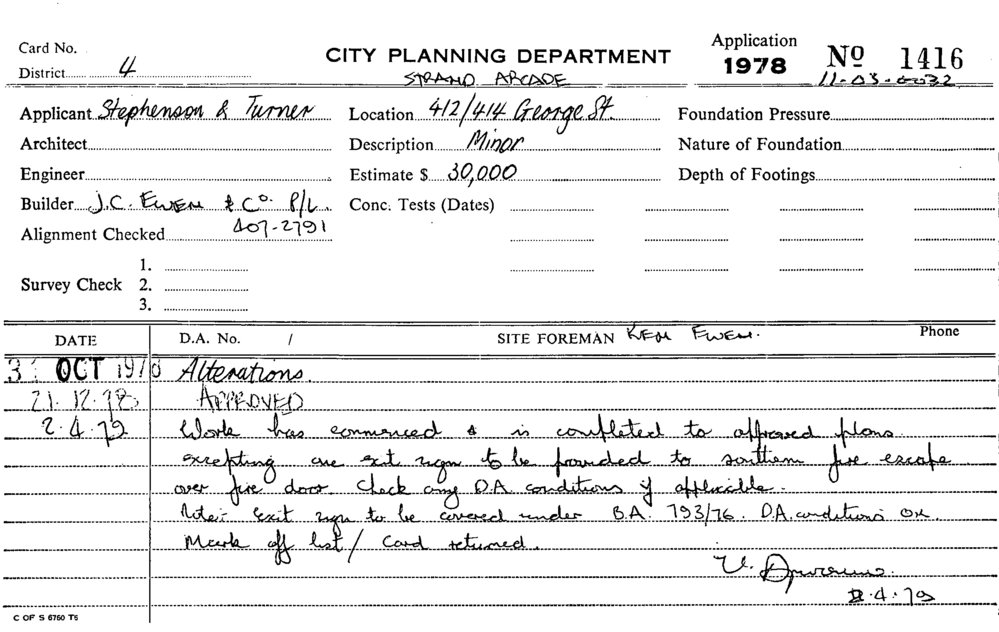 Card No.
District 4
CITY PLANNING DEPARTMENT
STRAND ARCADE
Application
1978 Nº 1416
11-03-0032
Applicant Stephenson & Turner
Location 412/414 George St.
Foundation Pressure
Architect
Description Minor
Nature of Foundation
Engineer
Estimate $ 30,000
Depth of Footings
Builder J.C. EWEN & Co. P/L.
Conc. Tests (Dates)
Alignment Checked 407-2791
Survey Check
1.
2.
3.
DATE D.A. No. / SITE FOREMAN KEN EWEN. Phone
31 OCT 1978 Alterations.
21.12.78 APPROVED
2.4.79 Work has commenced & is completed to approved plans
excepting one exit sign to be provided to southern fire escape
over fire door. Check any D.A. conditions if applicable.
Note:- Exit sign to be covered under B.A. 793/76. D.A. conditions OK
Mark off list / Card returned.
V.
2.4.79
C OF S 6760 T5